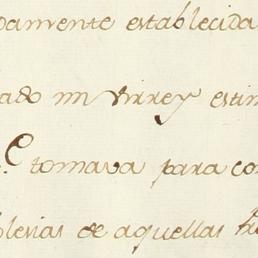 damente establecida
ado mi Virrey estim
.e tomava para co
blesias de aquellas